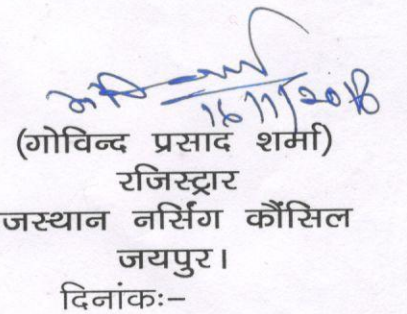 16/11/2018
(गोविन्द प्रसाद शर्मा)
रजिस्ट्रार
जस्थान नर्सिंग कौंसिल
जयपुर।
दिनांकः–